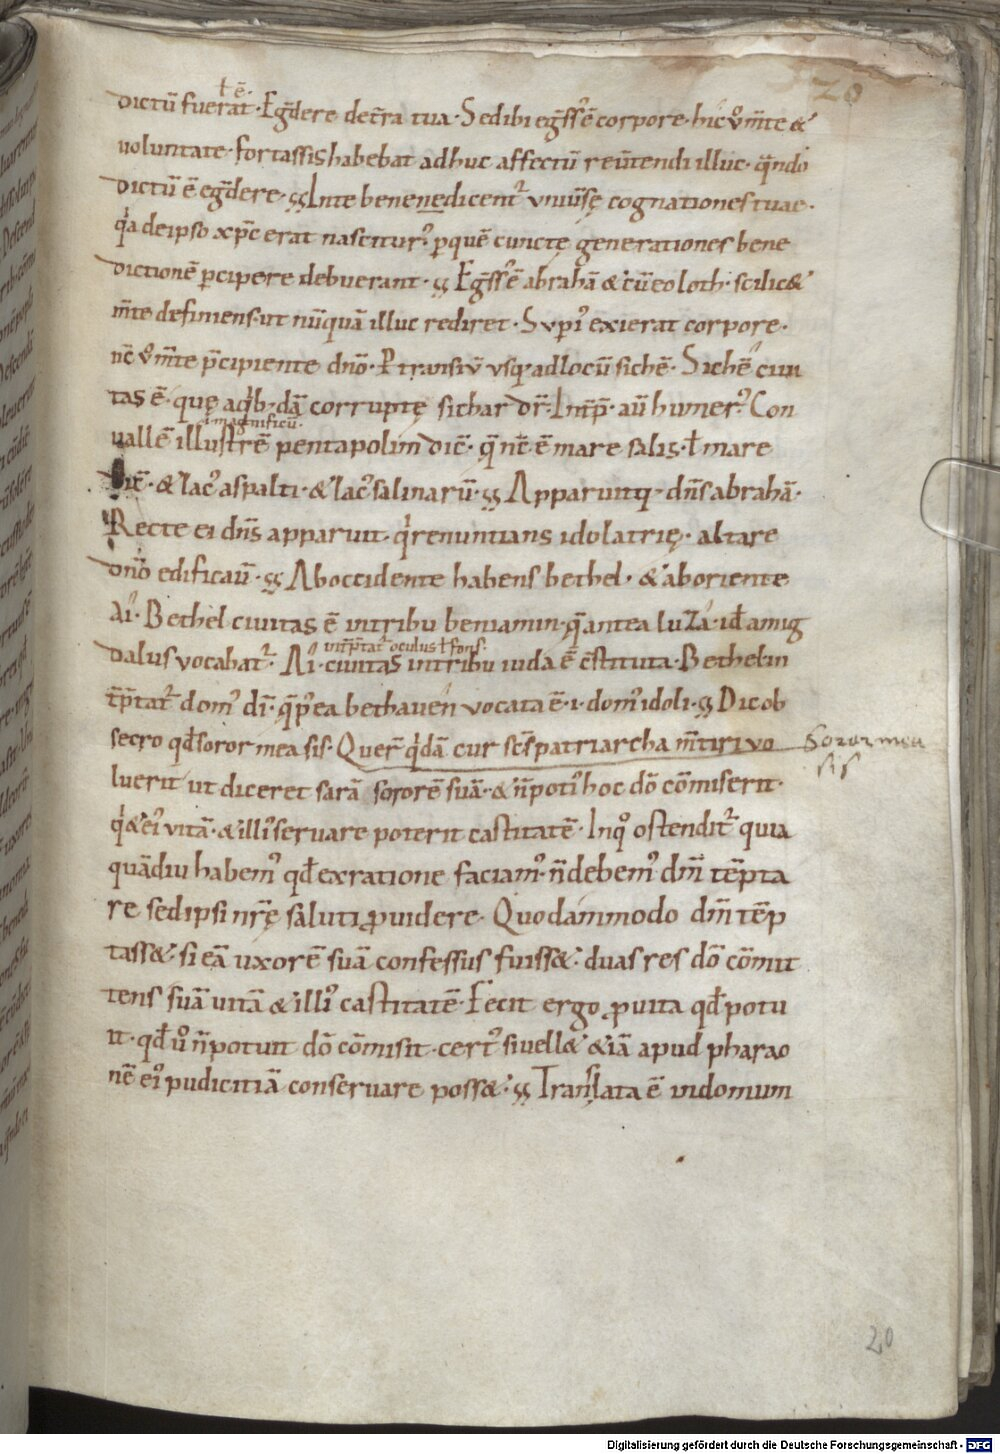 20
ł ē.
dictū fuerat. Egdere det̄ra tua. Sed ibi eḡssꝰ ē corpore. hic ů m̄te &
uoluntate. fortassis habebat adhuc affectū reūtendi illuc. q̄ndo
dictū ē eg̃dere. ꝯ Inte benenedicentᷣ uniūsę cognationes tuae.
q̇a de ipso xp̄c erat nasciturꝰ. ꝑ quē cunctę generationes bene
dictionē ꝑcipere debuerant. Eḡssꝰ ē abrahā & cū eo loth. scilic&
m̄te definiens. ut nūquā illuc rediret. Supᷣ exierat corpore.
nc̄ ů m̄te p̄cipiente dnō. Ptransiū usq; ad locū sichē. Sichē ciui
tas ē. quę a q̇b;dā corruptę sichar dr̄. Int̄p̄. aū humerꝰ. Con
.i. magnificū.
uallē illustrē pentapolim dic̄. q̄ nc̄ ē mare salis. ł mare
& lacꝰ aspalti. & lacꝰ salinarū. Apparuitq; dn̄s abrahā.
Recte ei dn̄s apparuit. q̇ renuntians idolatrię. altare
dnō edificaū. Ab occidente habens bethel. & ab oriente
Ai. Bethel ciuitas ē in tribu beniamin. q̄ antea luza. id̄ amig
int̄p̄tatᷣ oculus ł fons.
dalus uocabatᷣ. Ai. ciuitas in tribu iuda ē c̄stituta. Bethel in
t̄p̄tatᷣ domꝰ dī. q̄ pꝰea bethauen uocata ē .i. domꝰ idoli. Dic ob
secro qd̄ soror mea sis. Querᷣ q̇dā cur sc̄s patriarcha m̄tiri uo
Soror mea
sis
luerit ut diceret sarā sororē suā. & n̄ potiꝰ hoc dō cōmiserit.
q̇ & eiꝰ uitā. & illiꝰ seruare poterit castitatē. In qͦ ostenditᷣ quia
quādiu habemꝰ qd̄ ex ratione faciamꝰ. n̄ debemꝰ dn̄m tēpta
re sed ipsi nrę̄ saluti ꝓuidere. Quodammodo dn̄m tēp
tass&. si eā uxorē suā confessus fuiss&. duas res dō cōmit
tens suā uitā & illiꝰ castitatē. Fecit ergo ꝓ uita qd̄ potu
it. qd̄ ů n̄ potuit dō cōmisit. certꝰ si uell& & iā apud pharao
nē eiꝰ pudicitiā conseruare poss&. Translata ē in domum
20
Digitalisierung gefördert durch die Deutsche Forschungsgemeinschaft - DFG